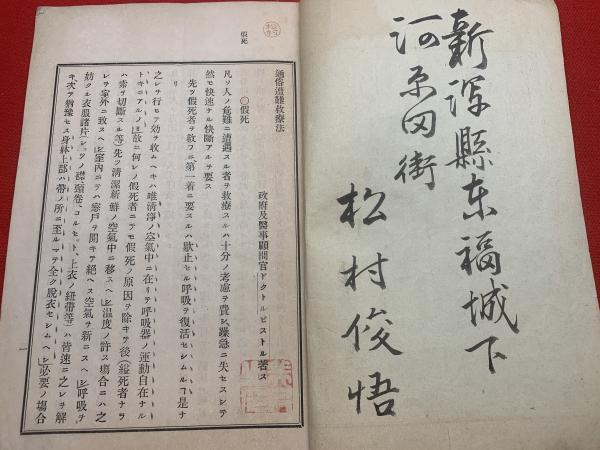 新潟縣东福城下
河原田街
松村俊悟
假死
通俗遭難救療法
政府及醫事顧問官ドクトルピストル著ス
○假死
凡ソ人ノ危難ニ遭遇スル者ヲ救療スルハ十分ノ考慮ヲ費シ躁急ニ失セスシテ
然モ快速ナル快斷アルヲ要ス
先ツ假死者ヲ救フニ第一着ニ要スルハ歇止セル呼吸ヲ復活セシムルヿ是ナ
之レヲ行モテ効ヲ收ムヘキハ唯清淨ノ空氣中ニ在リテ呼吸器ノ運動自在ナル
トキニアルノミ故ニ何レノ假死者ニテモ假死ノ原因ヲ除キテ後(縊死者ナラ
ハ索ヲ切斷スル等)先ツ清潔新鮮ノ空氣中ニ移スヘシ溫度ノ許ス塲合ニハ之
レヲ室外ニ致スヘシ室内ニテハ窓戸ヲ開キテ絕ヘス空氣ヲ新ニスヘシ呼吸ヲ
妨クル衣服諸片(シャツノ襟、頸卷、コルセット、上衣ノ紐帶等)ハ皆速ニ之レヲ解
キ次ヲ猶豫セス身躰上部ハ帶ノ所ニ至ルマテ全ク脫衣セシムヘシ必要ノ塲合